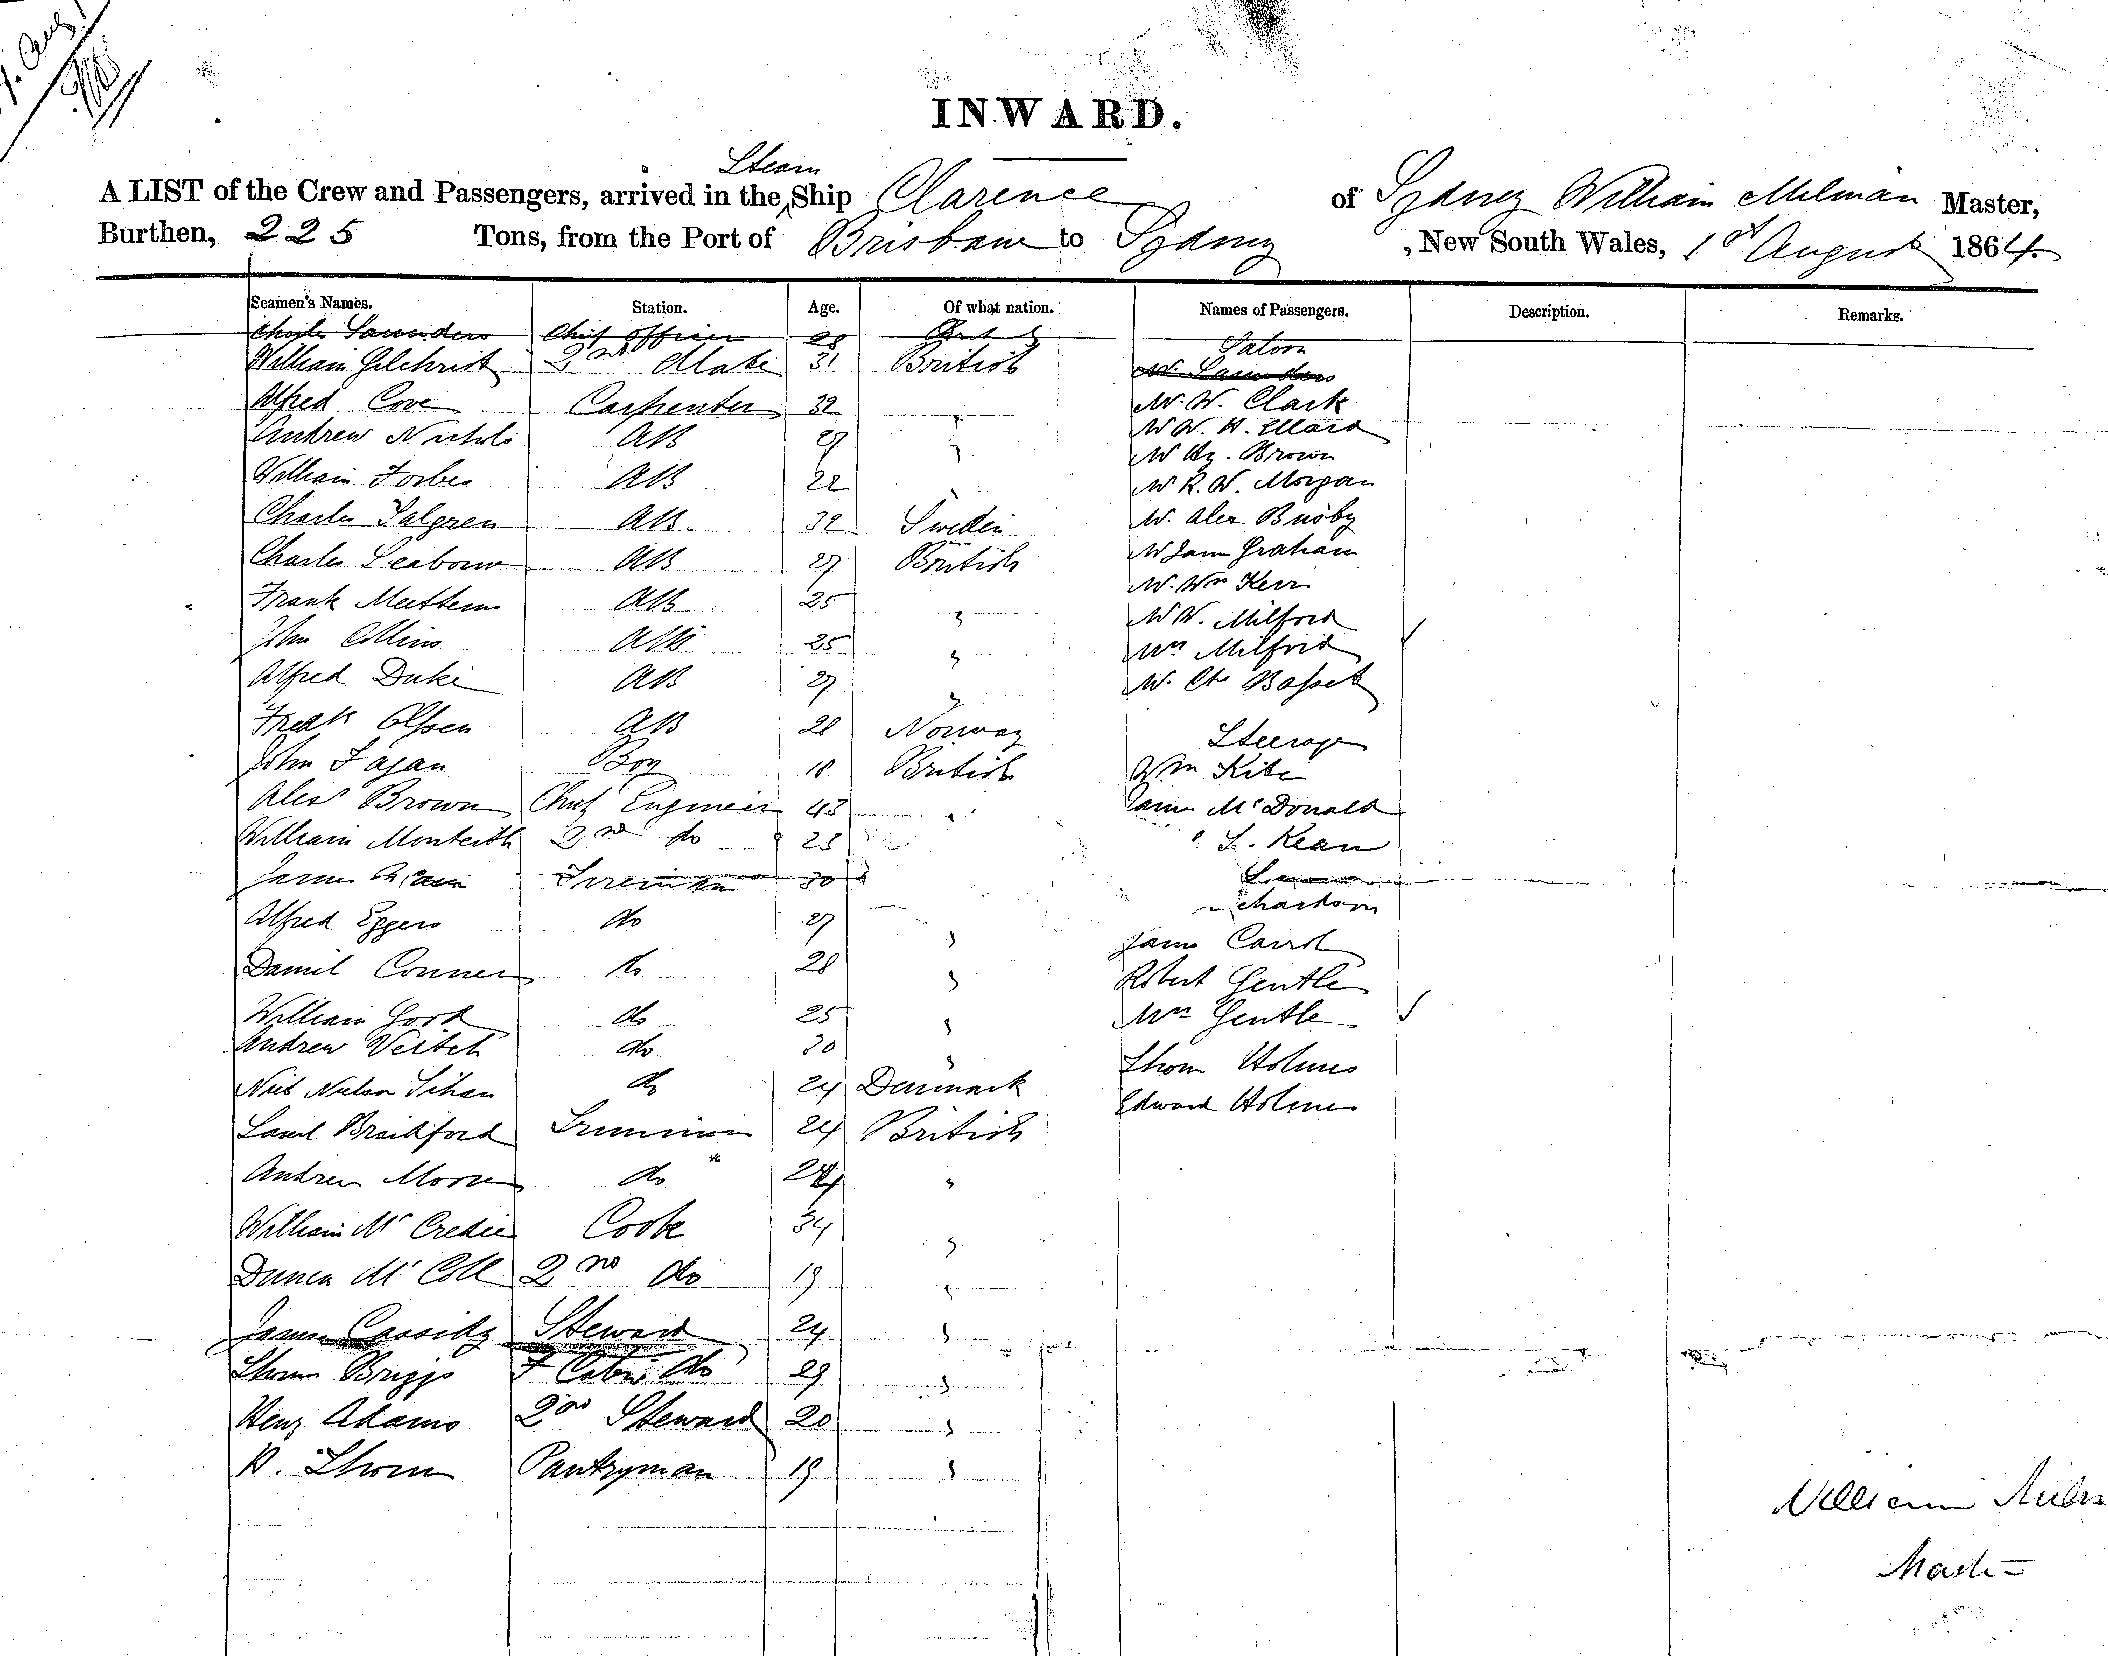 INWARD.
Steam
A LIST of the Crew and Passengers, arrived in the Ship Clarence of Sydney William Milman Master,
Burthen, 225 Tons, from the Port of Brisbane to Sydney, New South Wales, 1st August 1864.
Seamen's Names. Station. Age. Of what nation. Names of Passengers. Description. Remarks.
Charles Saunders Chief Officer 28
Saloon
William Gilchrist 2nd Mate 31 British Mr Saunders
Alfred Cove Carpenter 32 " Mr. W. Clark
Andrew Nichols AB 27 " Mr W. H. Ellard
Mr Hy. Brown
William Forbes AB 22 " Mr R. W. Morgan
Charles Salgren AB 32 Sweden Mr. Alex Busby
Charles Seabourn AB 27 British Mr James Graham
Mr. Wm Kerr
Frank AB 25 " Mr W. Milford
John Collins AB 25 " Mrs Milford
Alfred Duke AB 27 " Mr. Bassett
Fredk Olssen AB 28 Norway Steerage
John Fagan Boy 18 British Wm Kite
Alexr Brown Chief Engineer 43 " James McDonald
William Monteith 2nd do 28 " S. Kean
James Fireman 30
Alfred Eggers do 27 "
James Carrol
Daniel Conner do 28 " Robert Gentle
William Good do 25 " Mrs Gentle
Andrew Veitch do 30 " Thom Holmes
Niels Nielson do 24 Denmark Edward Holmes
Saml Braidford Trimmer 24 British
Andrew Moore do 24 "
William McCredie Cook 34 "
Duncan McColl 2nd do 19 "
James Cassidy Steward 24 "
Thomas Briggs F Cabin do 29 "
Heny Adams 2nd Steward 20 "
Thom Pantryman 19 "
William Milman
Master